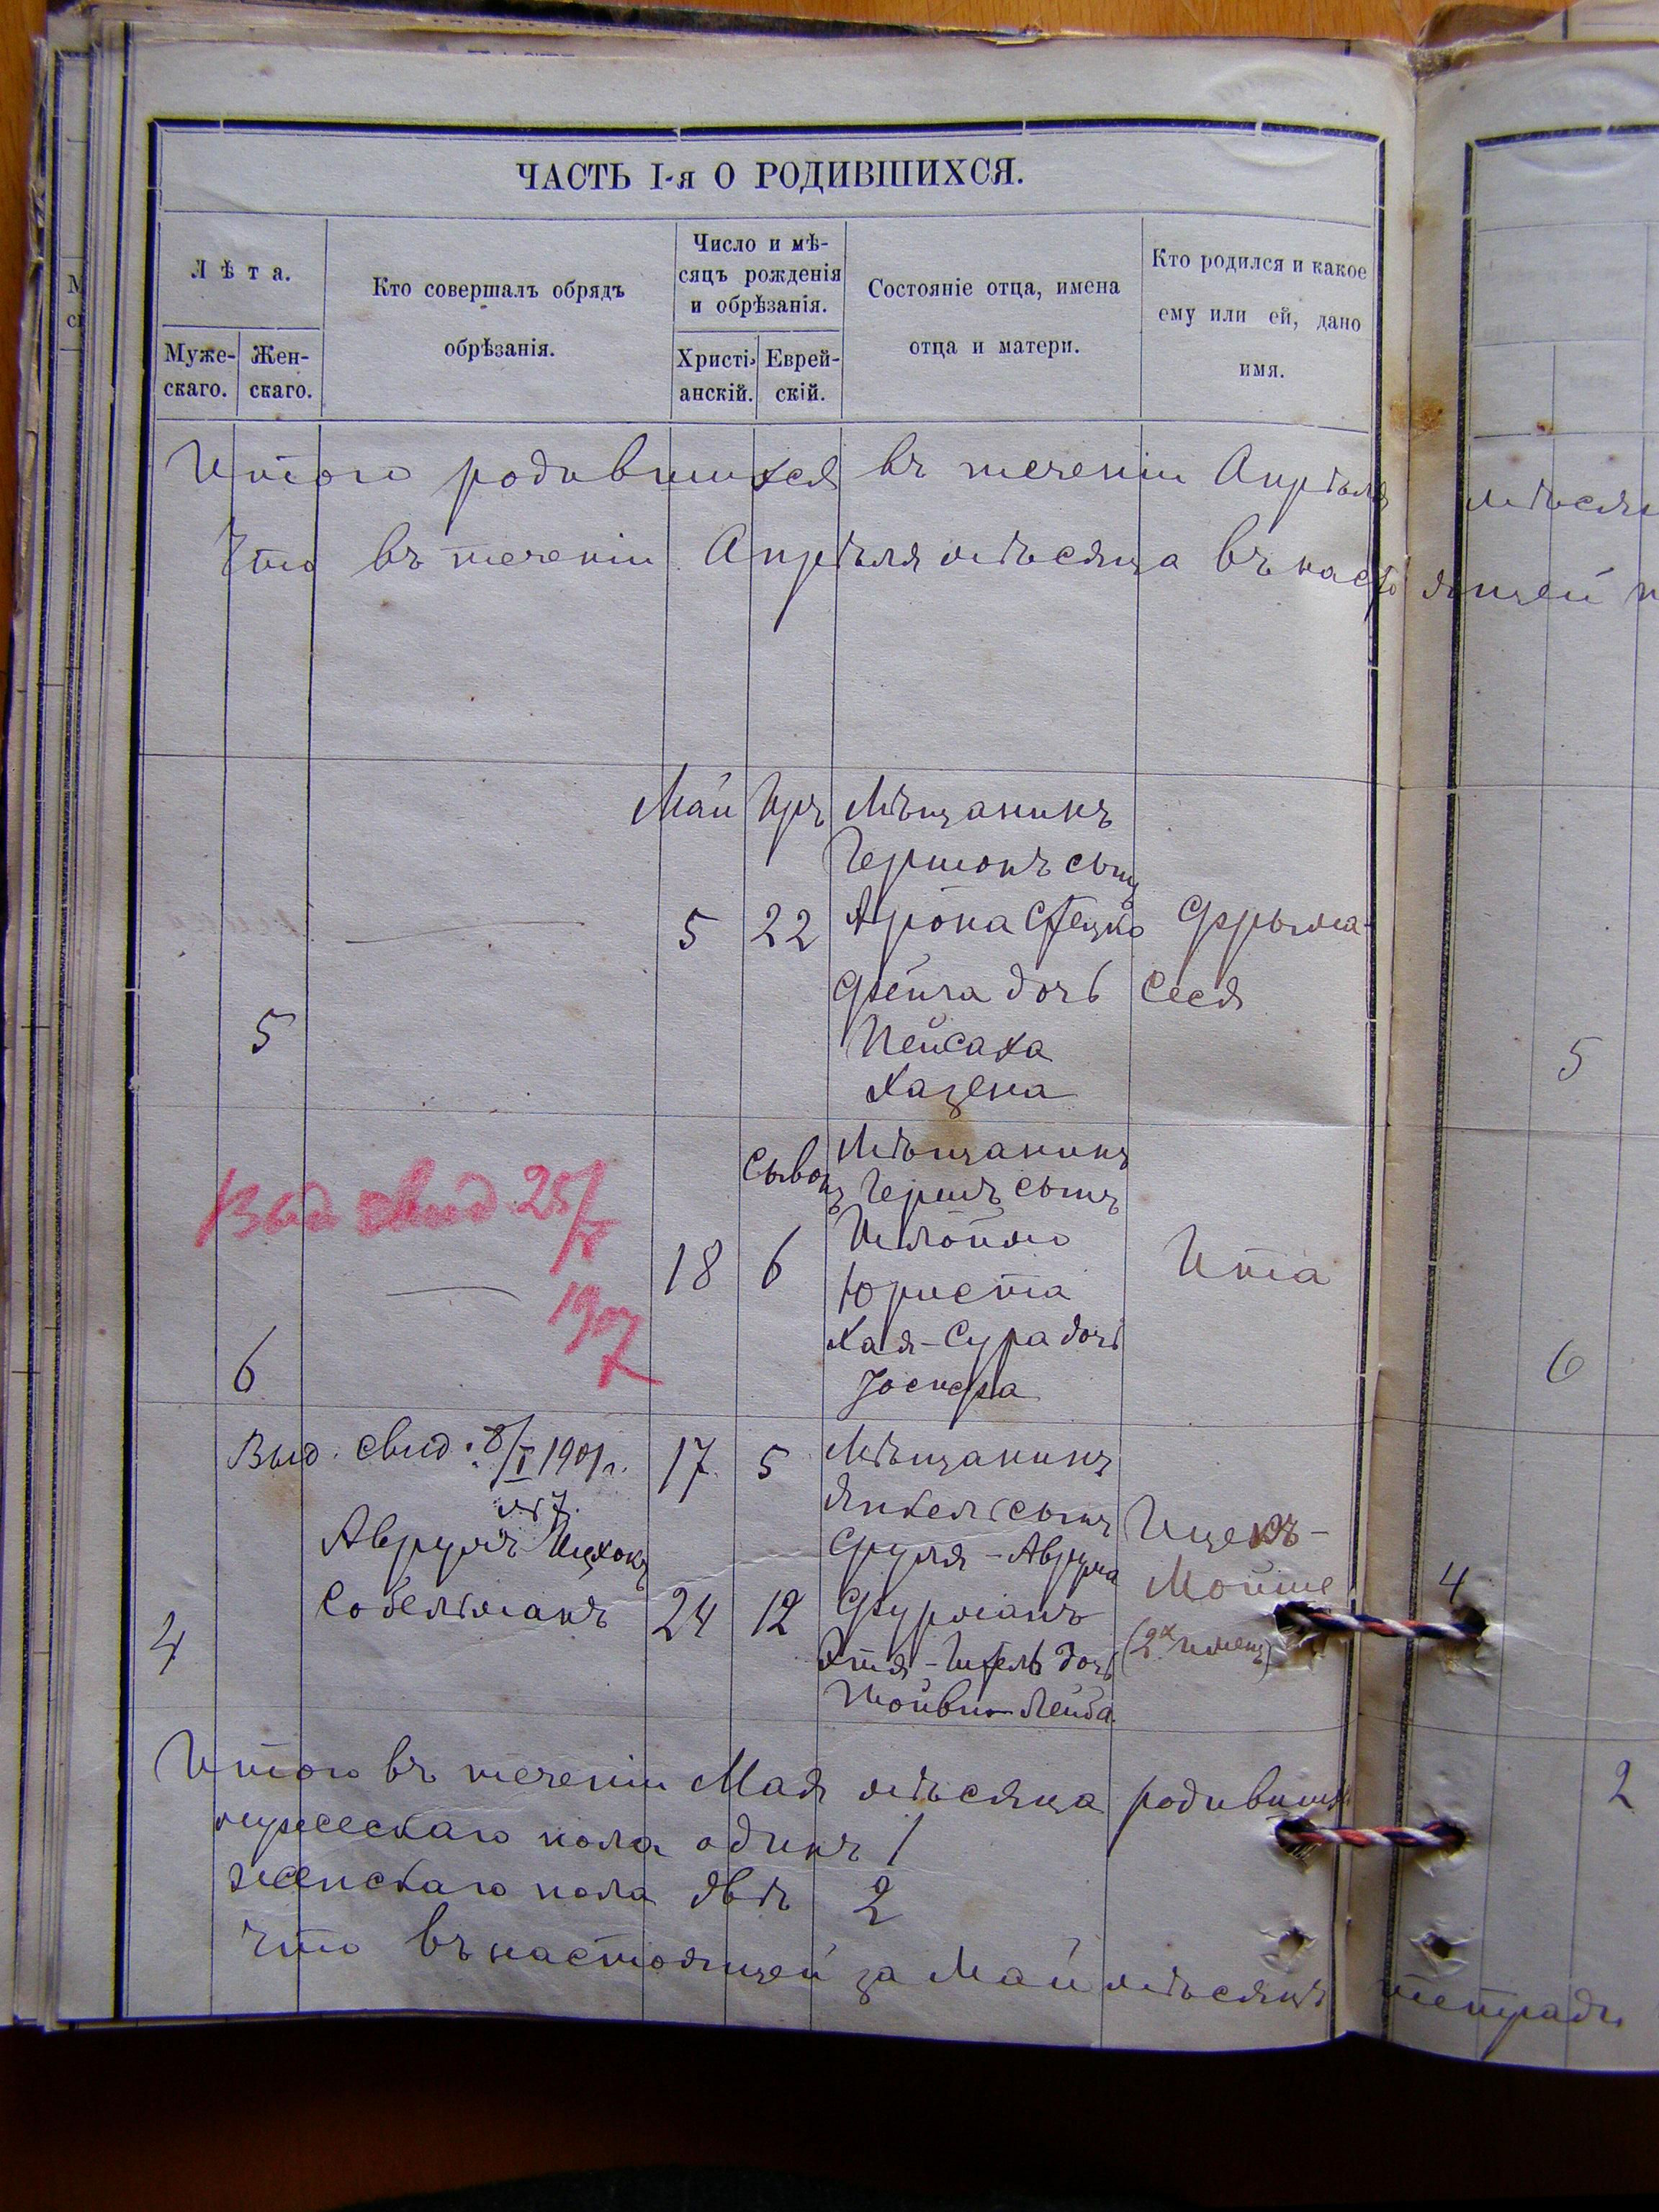 ЧАСТЬ I-я О РОДИВШИХСЯ.
Лѣта.
Муже-
скаго.
Жен-
скаго.
Кто совершалъ обрядъ
обрѣзанія.
Число и мѣ-
сяцъ рожденія
и обрѣзанія.
Христі-
анскій.
Еврей-
скій.
Состояніе отца, имена
отца и матери.
Кто родился и какое
ему или ей, дано
имя.
Итого родившихся въ теченіи Апрѣля мѣсяц
Что въ теченіи Апрѣля мѣсяца въ настоящей
Май Иръ Мѣщанинъ
Гершонъ сынъ
5 22 Арона Стецко Фрыма-
Фейга дочь Сеся
5 Пейсаха 5
Хацена
Сывонъ Мѣщанинъ
Выд свид 25/V
1907
Гершъ сынъ
Шлоймо
18 6 Юриста Ита
Хая-Сура дочь
6 Іосифа 6
Выд. свид. 8/I 1901г. 17 5 Мѣщанинъ
Янкель сынъ
Аврумъ Ицхокъ Сруля-Аврума Ицекъ-
Мойше 4
Собельманъ 24 12 Фурманъ
4 дочь (2х именъ)
Шойвно-Лейба
Итого въ теченіи Мая мѣсяца родивших 2
мужескаго пола одинъ 1
женскаго пола двѣ 2
Что въ настоящей за Май мѣсяцъ тетради